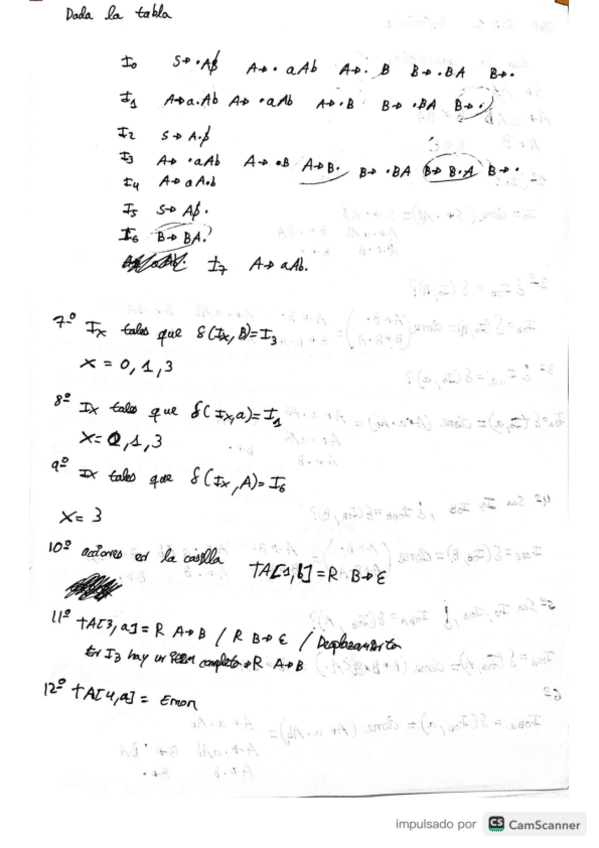 Dada la tabla
I0 S→·A$ A→·aAb A→·B B→·BA B→·
I1 A→a·Ab A→·aAb A→·B B→·BA B→·
I2 S→A·$
I3 A→·aAb A→·B A→B· B→·BA B→B·A B→·
I4 A→aA·b
I5 S→A$·
I6 B→BA·
I7 A→aAb·
7º Ix tales que δ(Ix,B)=I3
x=0,1,3
8º Ix tales que δ(Ix,a)=I1
x=0,1,3
9º Ix tales que δ(Ix,A)=I6
x=3
10º acciones en la casilla TA[1,b]=R B→ε
11º TA[3,a]=R A→B / R B→ε / Desplazamiento
En I3 hay un item completo→R A→B
12º TA[4,a]= Error
impulsado por CS CamScanner